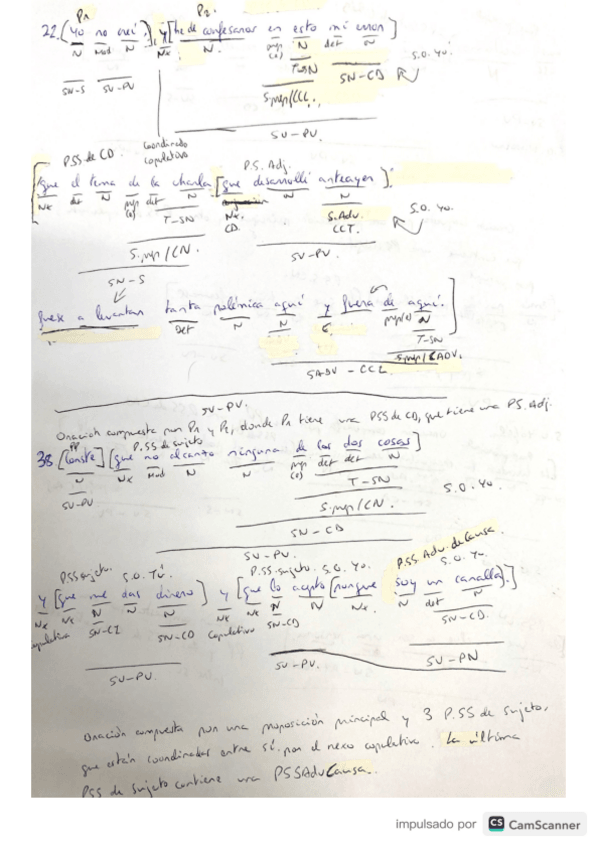 P1 P2
22. (Yo no creí), y [he de confesaros en esto mi error]
N Mod N Nx N prep (E) N det N
T-SN SN-CD S.O. Yo.
SN-S SV-PV
S.prep/CCL.
SV-PV.
PSS de CD. Coordinado copulativo P.S. Adj.
[que el tema de la charla [que desarrollé anteayer].
Nx det N prep (E) det N Nx. N N
T-SN CD. S.Adv. S.O. Yo.
CCT.
S.prep/CN. SV-PV.
SN-S
fuese a levantar tanta polémica aquí y fuera de aquí.]
Det N N prep(E) N
T-SN
S.prep/CADV.
SADV-CCL
SV-PV.
Oración compuesta por P1 y P2, donde P1 tiene una PSS de CD, que tiene una PS. Adj.
PP P.SS de sujeto
38. [Conste] [que no alcanto ninguna de las dos cosas]
N Nx Mod N N prep (E) det det N
SV-PV T-SN S.O. Yo.
S.prep/CN.
SN-CD
SV-PV.
P.SS. Adv. de Causa.
PSS sujeto. S.O. Tú. P.SS. sujeto S.O. Yo. S.O. Yo.
y [que me das dinero] y [que lo acepto [porque soy un canalla).]
Nx Nx N N N Nx Nx N N Nx N det N
copulativa SN-CI SN-CD Copulativo SN-CD SN-CD.
SV-PV. SV-PV. SV-PN
Oración compuesta por una proposición principal y 3 P.SS de sujeto,
que están coordinadas entre sí por el nexo copulativo. La última
PSS de sujeto contiene una PSSAdvCausa.
impulsado por CS CamScanner